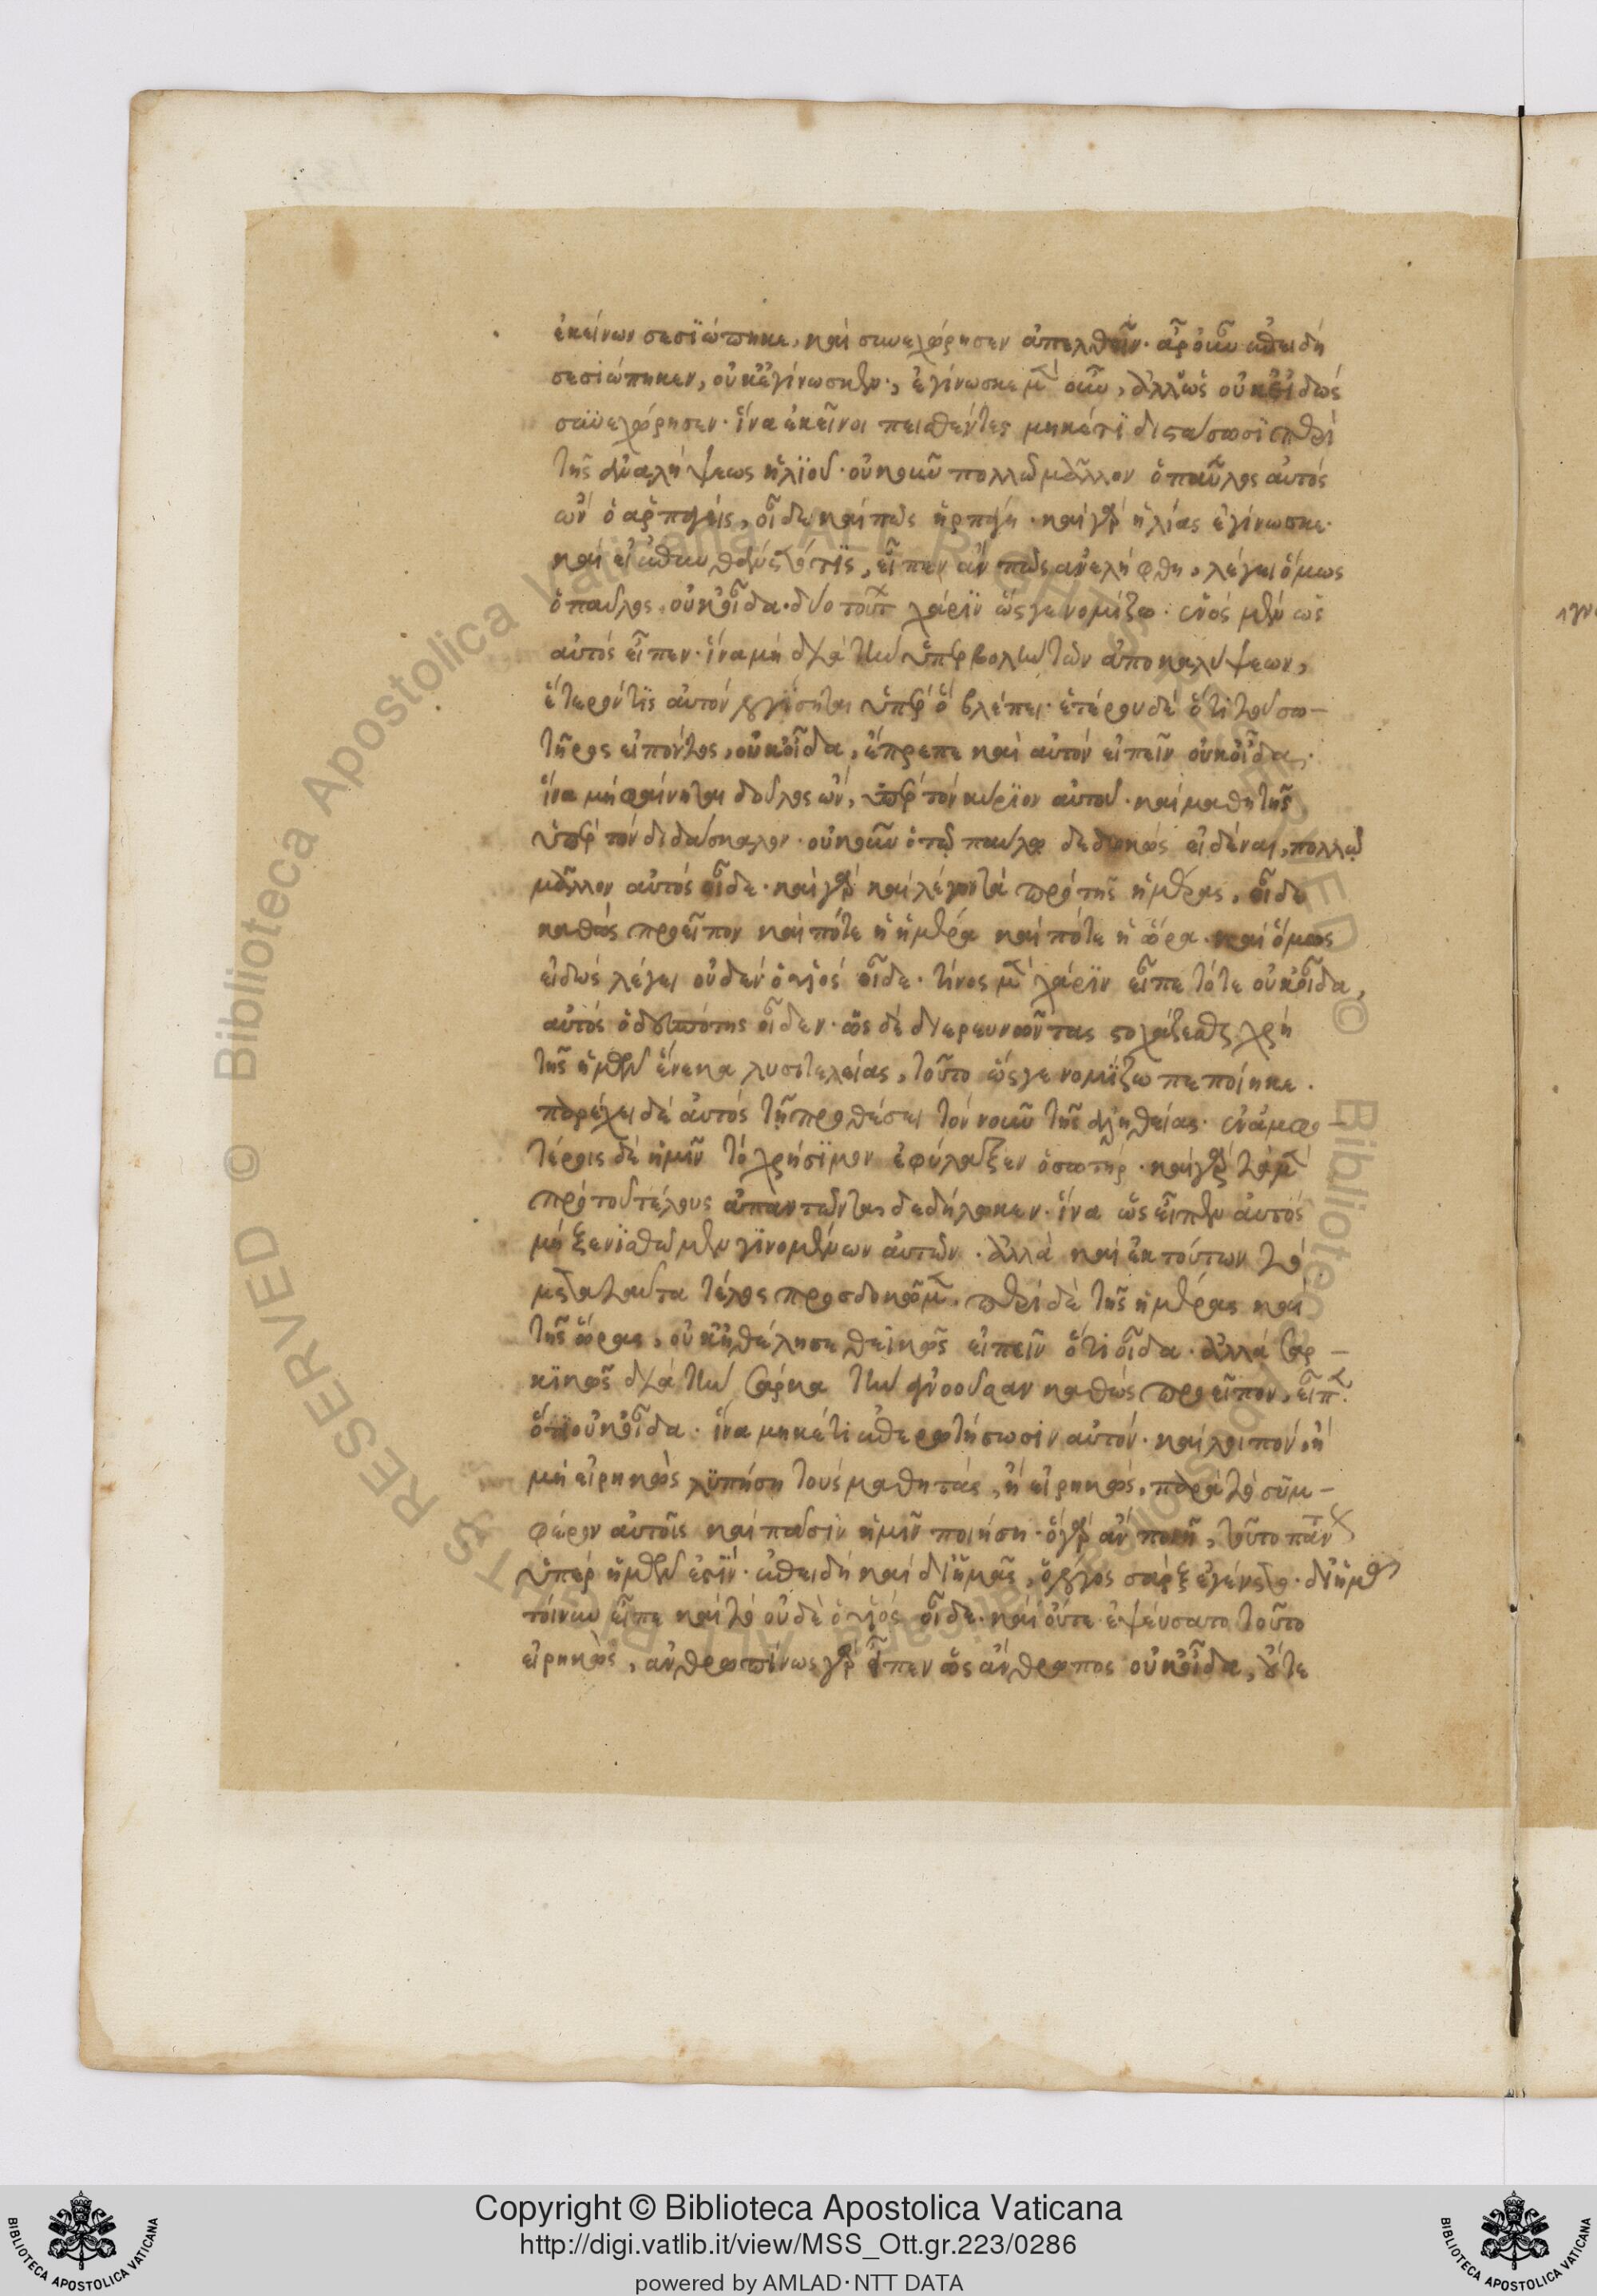 ἐκείνων σεσϊώπηκε, καὶ συνεχώρησεν ἀπελθεῖν· ἆρ οὖν ἐπειδὴ
σεσιώπηκεν, οὐκ ἐγίνωσκεν·, ἐγίνωσκε μὲν οὖν, ἀλλ ὡς οὐκ εἰδὼς
συνεχώρησεν· ἵνα ἐκεῖνοι πεισθέντες μηκέτϊ διστάσωσϊ περὶ
τῆς ἀναλήψεως ἠλϊοῦ· οὐκοῦν πολλῶ μᾶλλον ὁ παῦλος αὐτὸς
ὢν ὁ ἁρπαγεὶς, οἶδε καὶ πῶς ἡρπάγη· καὶ γὰρ ἠλίας ἐγίνωσκε·
καὶ εἰ ἐπυνθάνετό τϊς, εἶπεν ἂν πῶς ἀνελήφθη, λέγει ὅμως
ὁ παῦλος οὐκ οἶδα· δύο τούτων χάρϊν ὥς γε νομίζω· ἑνὸς μὲν ὡς
αὐτὸς εἶπεν· ἵνα μὴ διὰ τὴν ὑπερβολὴν τῶν ἀποκαλύψεων,
ἕτερόν τϊς αὐτὸν λογίσηται ὑπὲρ ὃ βλέπει· ἑτέρου δὲ ὅτι τοῦ σω-
τῆρος εἰπόντος, οὐκ οἶδα, ἔπρεπε καὶ αὐτὸν εἰπεῖν οὐκ οἶδα·
ἵνα μὴ φαίνηται δοῦλος ὢν, ὑπὲρ τὸν κύρϊον αὐτοῦ· καὶ μαθητὴς
ὑπὲρ τὸν διδάσκαλον· οὐκοῦν ὁ τῷ παύλῳ δεδωκὼς εἰδέναι, πολλῷ
μᾶλλον αὐτὸς οἶδε· καὶ γὰρ καὶ λέγων τὰ πρὸ τῆς ἡμέρας, οἶδε
καθὼς προεῖπον καὶ πότε ἡ ἡμέρα καὶ πότε ἡ ὥρα· καὶ ὅμως
εἰδὼς λέγει οὐδὲ ὁ υἱὸς οἶδε· τίνος μὲν χάρϊν εἶπε τότε οὐκ οἶδα,
αὐτὸς ὁ δεσπότης οἶδεν· ὡς δὲ διερευνῶντας στοχάζεσθαι χρὴ
τῆς ἡμῶν ἕνεκα λυσιτελείας, τοῦτο ὥς γε νομίζω πεποίηκε.
παρέχει δὲ αὐτὸς τῇ προθέσει τὸν νοῦν τῆς ἀληθείας· ἐν ἀμφο-
τέροις δὲ ἡμῖν τὸ χρήσϊμον ἐφύλαξεν ὁ σωτὴρ· καὶ γὰρ τὰ μὲν
πρὸ τοῦ τέλους ἀπαντῶντα, δεδήλωκεν· ἵνα ὡς εἶπεν αὐτὸς
μὴ ξενϊσθῶμεν γϊνομένων αὐτῶν· ἀλλὰ καὶ ἐκ τούτων τὸ
μετὰ ταῦτα τέλος προσδοκῶμεν. περὶ δὲ τῆς ἡμέρας καὶ
τῆς ὥρας, οὐκ ἠθέλησε θεϊκῶς εἰπεῖν ὅτι οἶδα· ἀλλὰ σαρ-
κϊκῶς διὰ τὴν σάρκα τὴν ἀγνοοῦσαν καθὼς προεῖπον, εἶπεν·
ὅτϊ οὐκ οἶδα· ἵνα μηκέτι ἐπερωτήσωσιν αὐτόν· καὶ λοιπὸν, ἢ
μὴ εἰρηκὼς λϋπήσῃ τοὺς μαθητὰς, ἢ εἰρηκὼς, παρὰ τὸ συμ-
φέρον αὐτοῖς καὶ πᾶσϊν ἡμῖν ποιήσῃ· ὃ γὰρ ἂν ποιῇ, τοῦτο πάντως
ὑπὲρ ἡμῶν ἐστϊν· ἐπειδὴ καὶ δι ἡμᾶς, ὁ λόγος σὰρξ ἐγένετο· δι ἡμᾶς
τοίνυν εἶπε καὶ τὸ οὐδὲ ὁ υἱὸς οἶδε· καὶ οὔτε ἐψεύσατο τοῦτο
εἰρηκὼς, ἀνθρωπίνως γὰρ εἶπεν ὡς ἄνθρωπος οὐκ οἶδα, οὔτε
Copyright © Biblioteca Apostolica Vaticana
http://digi.vatlib.it/view/MSS_Ott.gr.223/0286
powered by AMLAD·NTT DATA